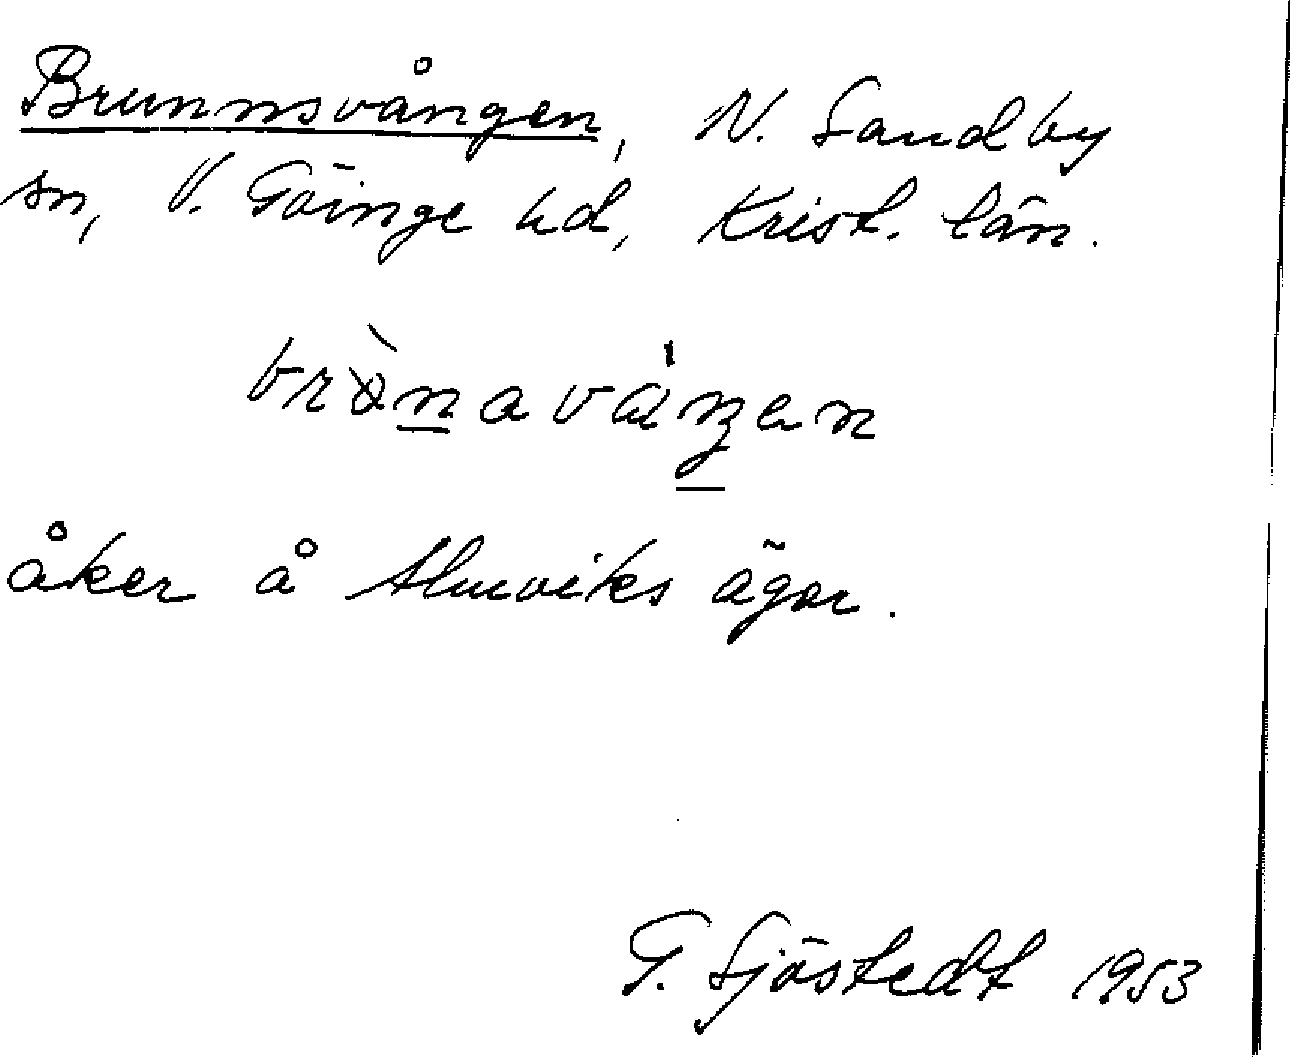 Brunnsvången, N. Sandby
sn, V. Göinge hd, Krist. län.
åker å Almviks ägor.
G. Sjöstedt 1953